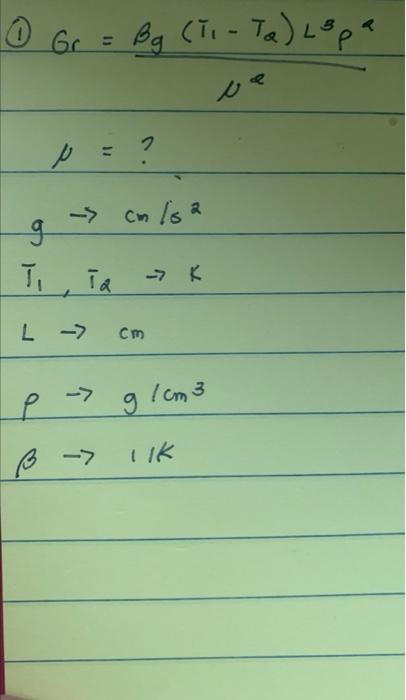 ① Gr = βg (T₁ - T₂) L³ρ²
μ²
μ = ?
g → cm/s²
T₁, T₂ → K
L → cm
ρ → g/cm³
β → 1/K